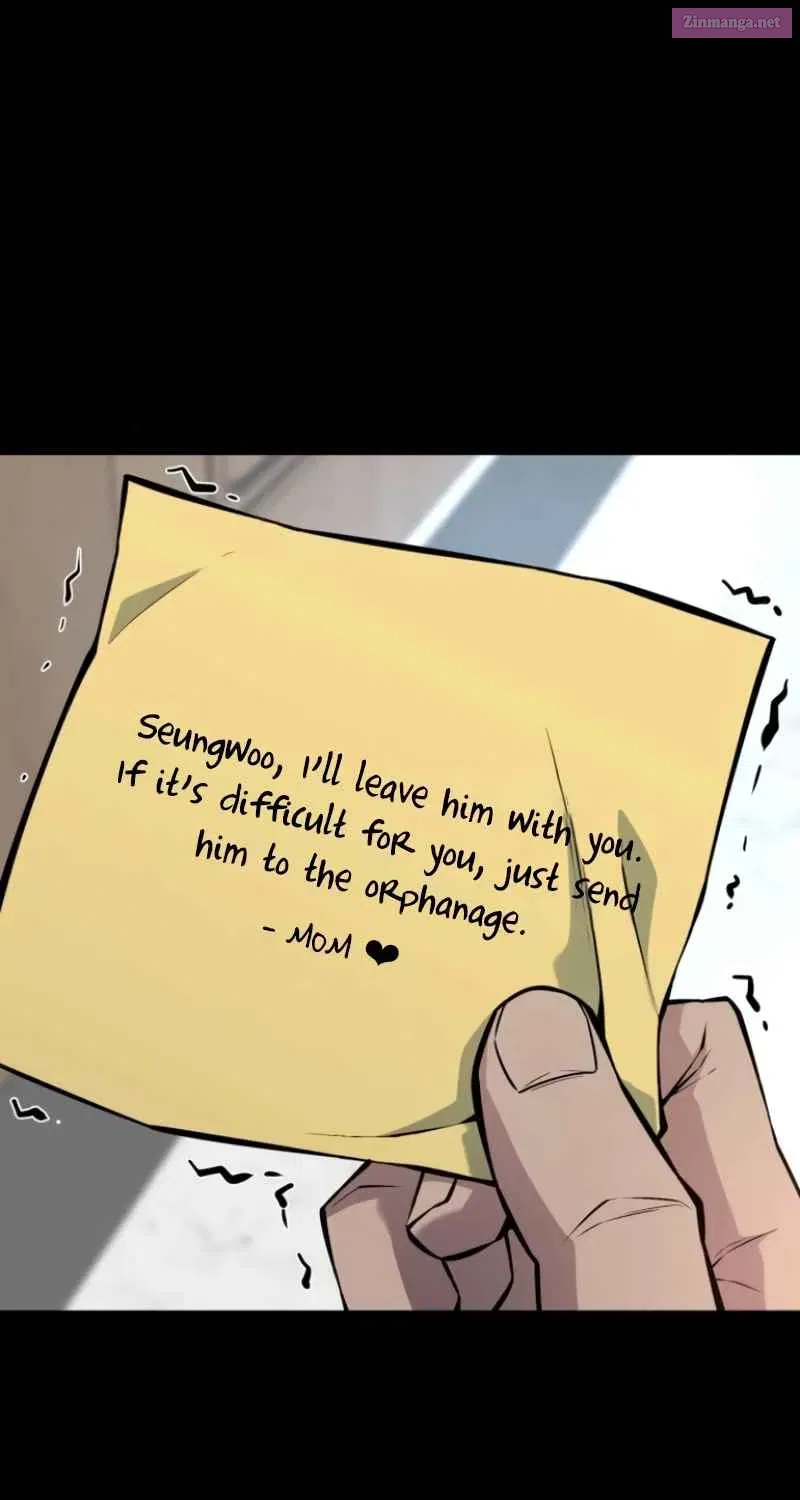 Zinmanga.net
SeungWoo, I'll leave him with you.
If it's difficult for you, just send
him to the orphanage.
- MOM ❤